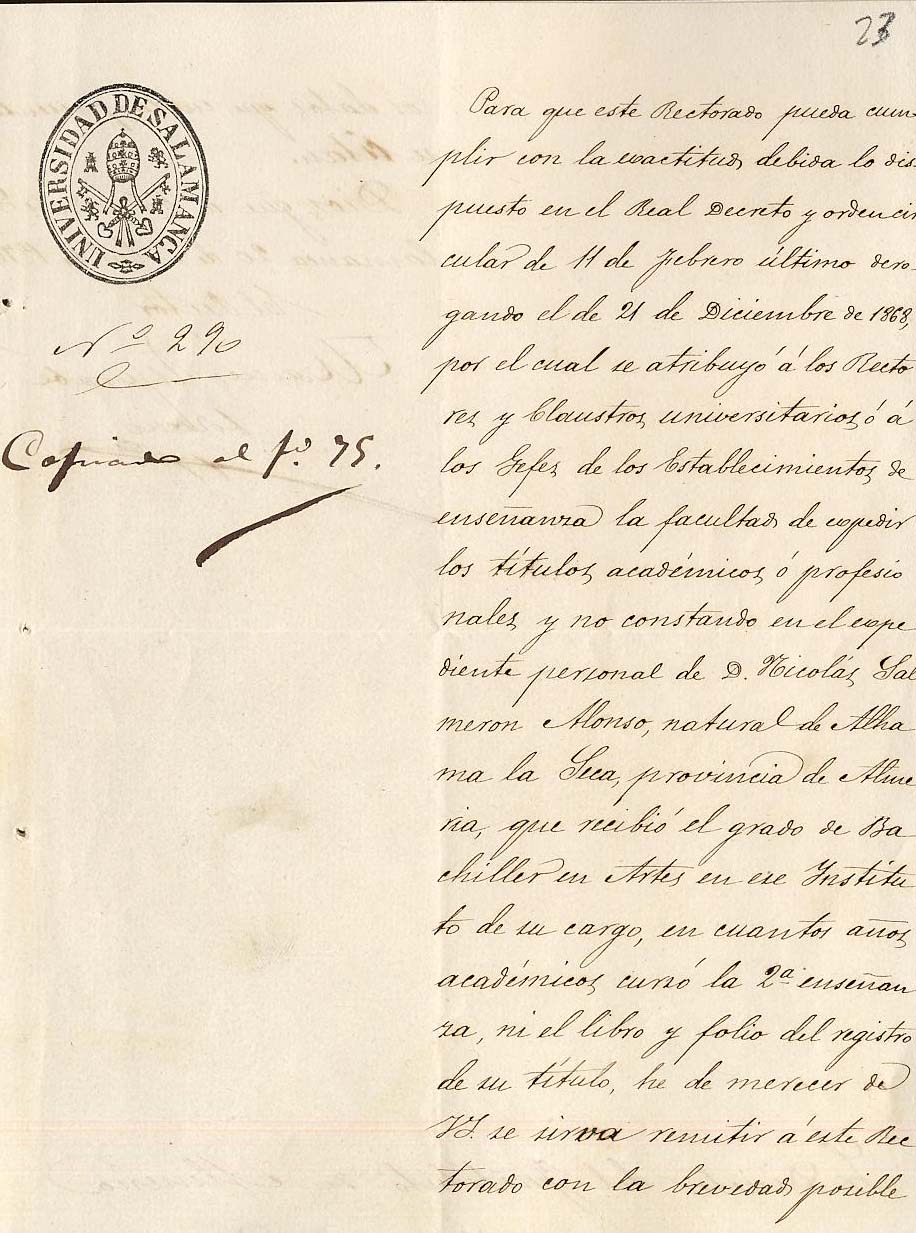 23
UNIVERSIDAD DE SALAMANCA
Nº 290
Copiado al fº. 75.
Para que este Rectorado pueda cum-
plir con la exactitud debida lo dis-
puesto en el Real Decreto y orden cir
cular de 11 de Febrero último dero-
gando el de 21 de Diciembre de 1868,
por el cual se atribuyó á los Recto
res y Claustros universitarios ó á
los Gefes de los Establecimientos de
enseñanza la facultad de expedir
los títulos académicos ó profesio
nales y no constando en el expe
diente personal de D. Nicolás Sal
meron Alonso, natural de Alha
ma la Seca, provincia de Alme
ria, que recibió el grado de Ba
chiller en Artes en ese Institu
to de su cargo, en cuantos años
académicos cursó la 2ª enseñan
za, ni el libro y folio del registro
de su título, he de merecer de
V.S. se sirva remitir á este Rec
torado con la brevedad posible